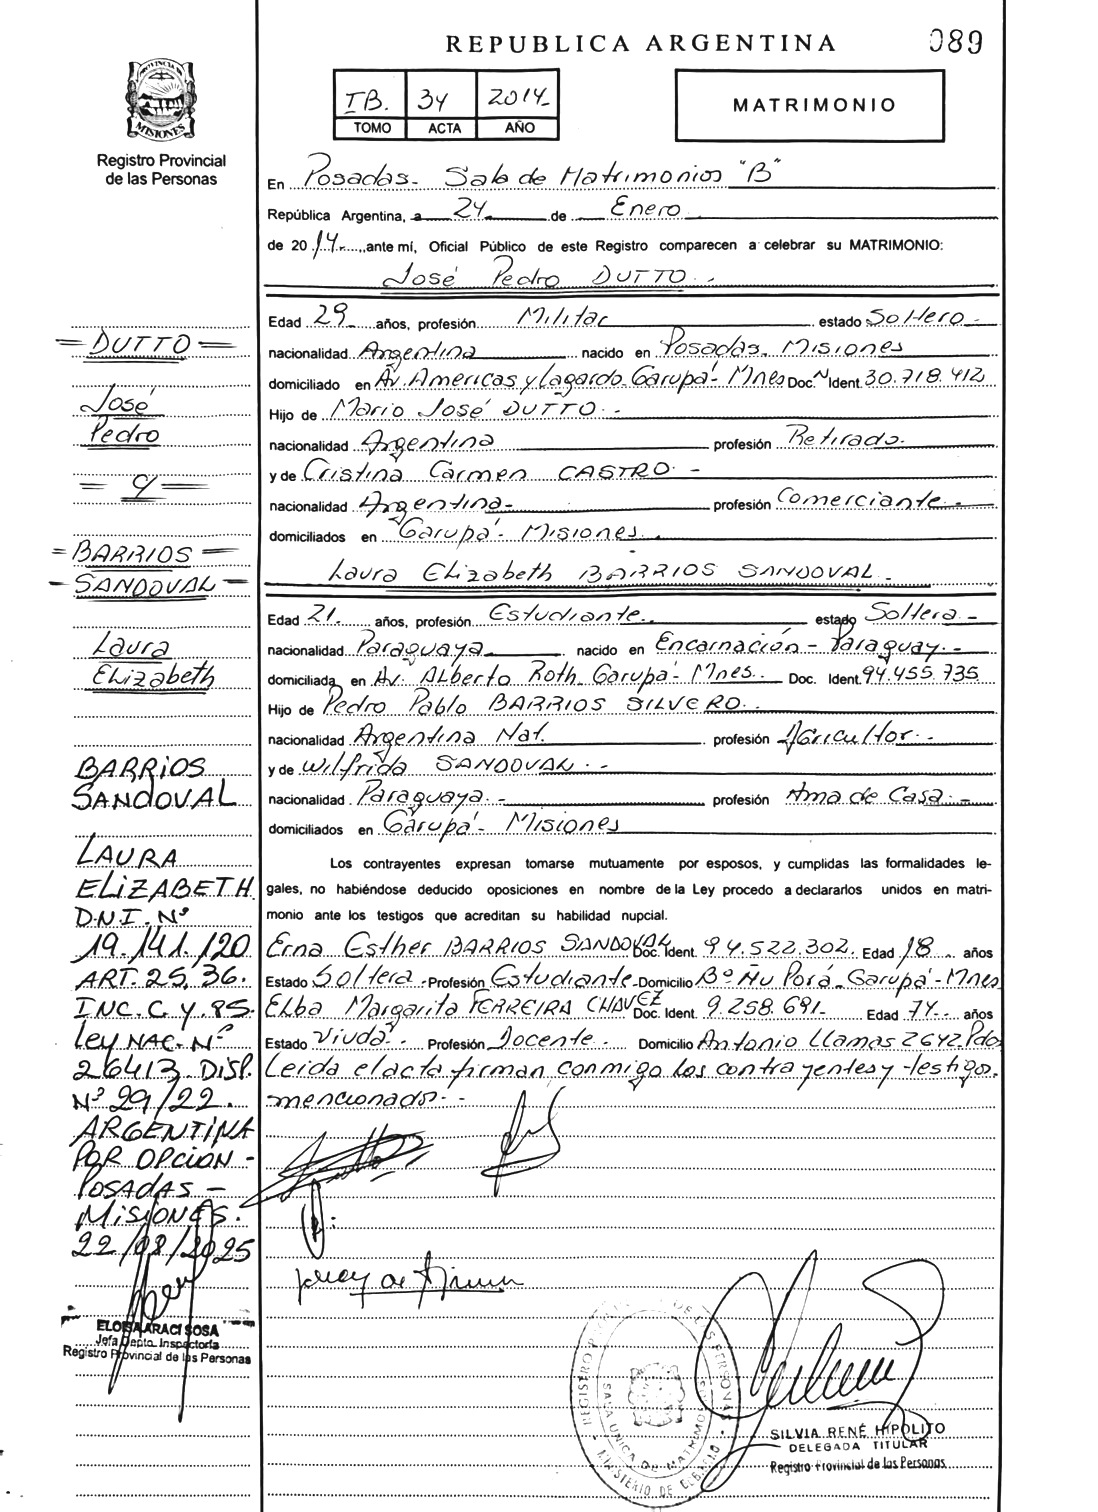 REPUBLICA ARGENTINA
089
PROVINCIA DE
MISIONES
Registro Provincial
de las Personas
IB. 34 2014-
TOMO ACTA AÑO
MATRIMONIO
En Posadas- Sala de Matrimonios "B"
República Argentina, a 24 de Enero
de 2014.- ,ante mí, Oficial Público de este Registro comparecen a celebrar su MATRIMONIO:
José Pedro DUTTO.-
Edad 29 años, profesión Militar estado Soltero-
nacionalidad Argentina nacido en Posadas. Misiones
domiciliado en Av. Americas y Lagardo- Garupá- Mnes Doc. N Ident. 30.718.412
Hijo de Mario José DUTTO.-
nacionalidad Argentina profesión Retirado.
y de Cristina Carmen CASTRO.-
nacionalidad Argentina- profesión Comerciante.-
domiciliados en Garupá- Misiones.
Laura Elizabeth BARRIOS SANDOVAL.
Edad 21. años, profesión Estudiante.. estado Soltera-
nacionalidad Paraguaya nacido en Encarnación- Paraguay.-
domiciliada en Av. Alberto Roth- Garupá- Mnes.. Doc. Ident. 94.455.735
Hijo de Pedro Pablo BARRIOS SILVERO.-
nacionalidad Argentina Nat. profesión Agricultor.-
y de Wilfrida SANDOVAL.-
nacionalidad Paraguaya.- profesión Ama de Casa.-
domiciliados en Garupá- Misiones
Los contrayentes expresan tomarse mutuamente por esposos, y cumplidas las formalidades le-
gales, no habiéndose deducido oposiciones en nombre de la Ley procedo a declararlos unidos en matri-
monio ante los testigos que acreditan su habilidad nupcial.
Erna Esther BARRIOS SANDOVAL Doc. Ident. 94.522.302. Edad 18 años
Estado Soltera- Profesión Estudiante- Domicilio Bº Ñu Porá- Garupá- Mnes
Elba Margarita FERREIRA CHAVEZ Doc. Ident. 9.258.691- Edad 74- años
Estado Viuda.- Profesión Docente.- Domicilio Antonio Llamas 2642 Pdas
Leida el acta firman conmigo los contrayentes y testigos.
mencionado.-
=DUTTO=
José
Pedro
= y =
=BARRIOS=
-SANDOVAL-
Laura
Elizabeth
BARRIOS
SANDOVAL
LAURA
ELIZABETH
D.N.I. Nº
19.141.120
ART. 25, 36.
INC. C. Y. 85.
Ley NAC. Nº
26413. DISP.
Nº 29/22.
ARGENTINA
POR OPCIÓN-
POSADAS-
MISIONES.
22/08/2025
ELOISA ARACI SOSA
Jefa Depto. Inspectoría
Registro Provincial de las Personas
SALA UNICA DE MATRIMONIOS
SILVIA RENÉ HIPOLITO
DELEGADA TITULAR
Registro Provincial de las Personas